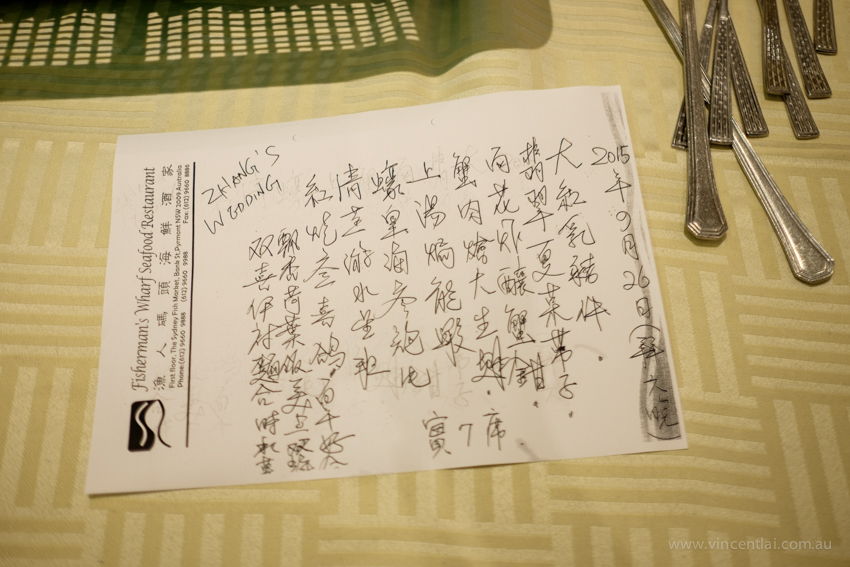 2015年9月26日(六晚
大紅乳豬件.
翡翠夏菓带子.
百花炸釀蟹鉗.
蟹肉燴大生翅.
上湯焗龍蝦
蠔皇
寅7席
清蒸游水星班
紅燒喜鴿. 百年好合
飄香荷葉飯 美点双輝
双喜伊府麵 合時
ZHANG'S
WEDDING
Fisherman's Wharf Seafood Restaurant
漁人碼頭海鮮酒家
First floor, The Sydney Fish Market, Bank St, Pyrmont NSW 2009 Australia
Phone: (612) 9660 9888 (612) 9660 9988 Fax: (612) 9660 8885
www.vincentlai.com.au